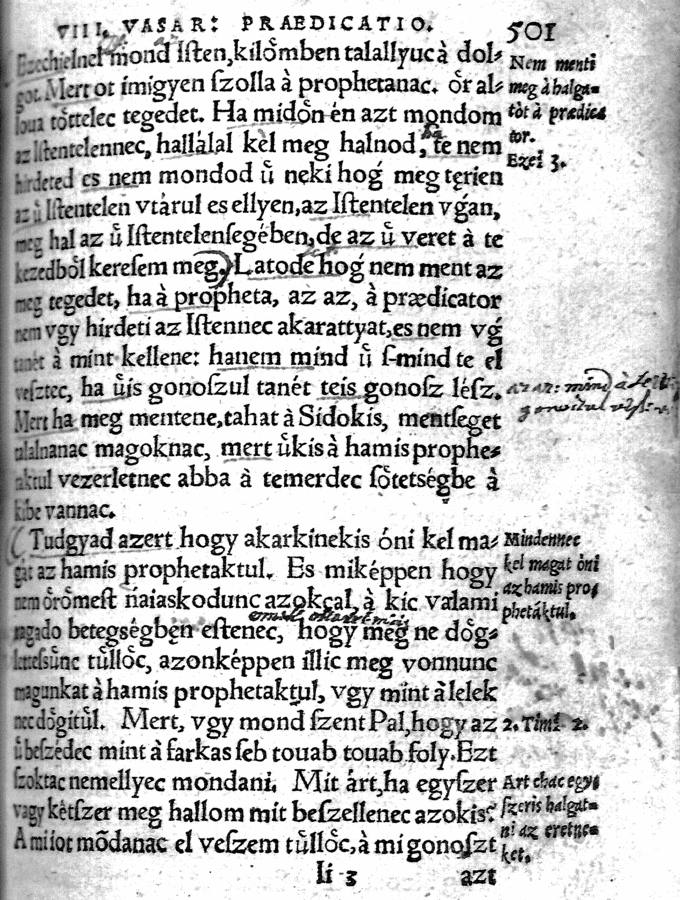 VIII. VASAR: PRAEDICATIO. 501
Ezechielnel mond Iſten, kilo̊mben talallyuc à dol⸗
got. Mert ot imigyen ſzolla à prophetanac. o̊r al⸗
loua to̊ttelec tegedet. Ha mido̊n én azt mondom
az Iſtentelennec, hallálal kèl meg halnod, te nem
hirdeted es nem mondod ů neki hoǵ meg tęrien
az ů Iſtentelen vtárul es ellyen, az Iſtentelen vǵan,
meg hal az ů Iſtentelenſegében, de az ů veret à te
kezedbo̊l kereſem meg. Latode hoǵ nem ment az
meg tegedet, ha à propheta, az az, à prædicator
nem vgy hirdeti az Iſtennec akarattyat, es nem vǵ
tanét à mint kellene: hanem mind ů ſ-mind te el
veſztec, ha ůis gonoſzul tanét teis gonoſz léſz.
Mert ha meg mentene, tahat à Sidokis, mentſeget
talalnanac magoknac, mert ůkis à hamis prophe⸗
taktul vezerletnec abba à temerdec ſo̊tetsęgbe à
kibe vannac.
Tudgyad azert hogy akarkinekis óni kel ma⸗
gát az hamis prophetaktul. Es miképpen hogy
nem o̊ro̊meſt ńaiaskodunc azokcal, à kic valami
ragado betegsęgbęn eſtenec, hogy meg ne do̊g⸗
letteſsůnc tůllo̊c, azonképpen illic meg vonnunc
magunkat à hamis prophetaktul, vgy mint à lelek
nec do̊gitůl. Mert, vgy mond ſzent Pal, hogy az
ů beſzèdec mint à farkas ſeb touab touab foly. Ezt
ſzoktac nemellyec mondani. Mit árt, ha egyſzer
vagy kètſzer meg hallom mit beſzellenec azokis?
A mi iot mõdanac el veſzem tůllo̊c, à mi gonoſzt
Ii 3 azt
Nem menti
meg à halga⸗
tòt à prædica
tor.
Ezei 3.
az az: mind
Mindennec
kel magat òni
az hamis pro⸗
phetáktul.
2. Timi 2.
Art chac egy⸗
ſzeris halgat⸗
ni az eretne⸗
ket.